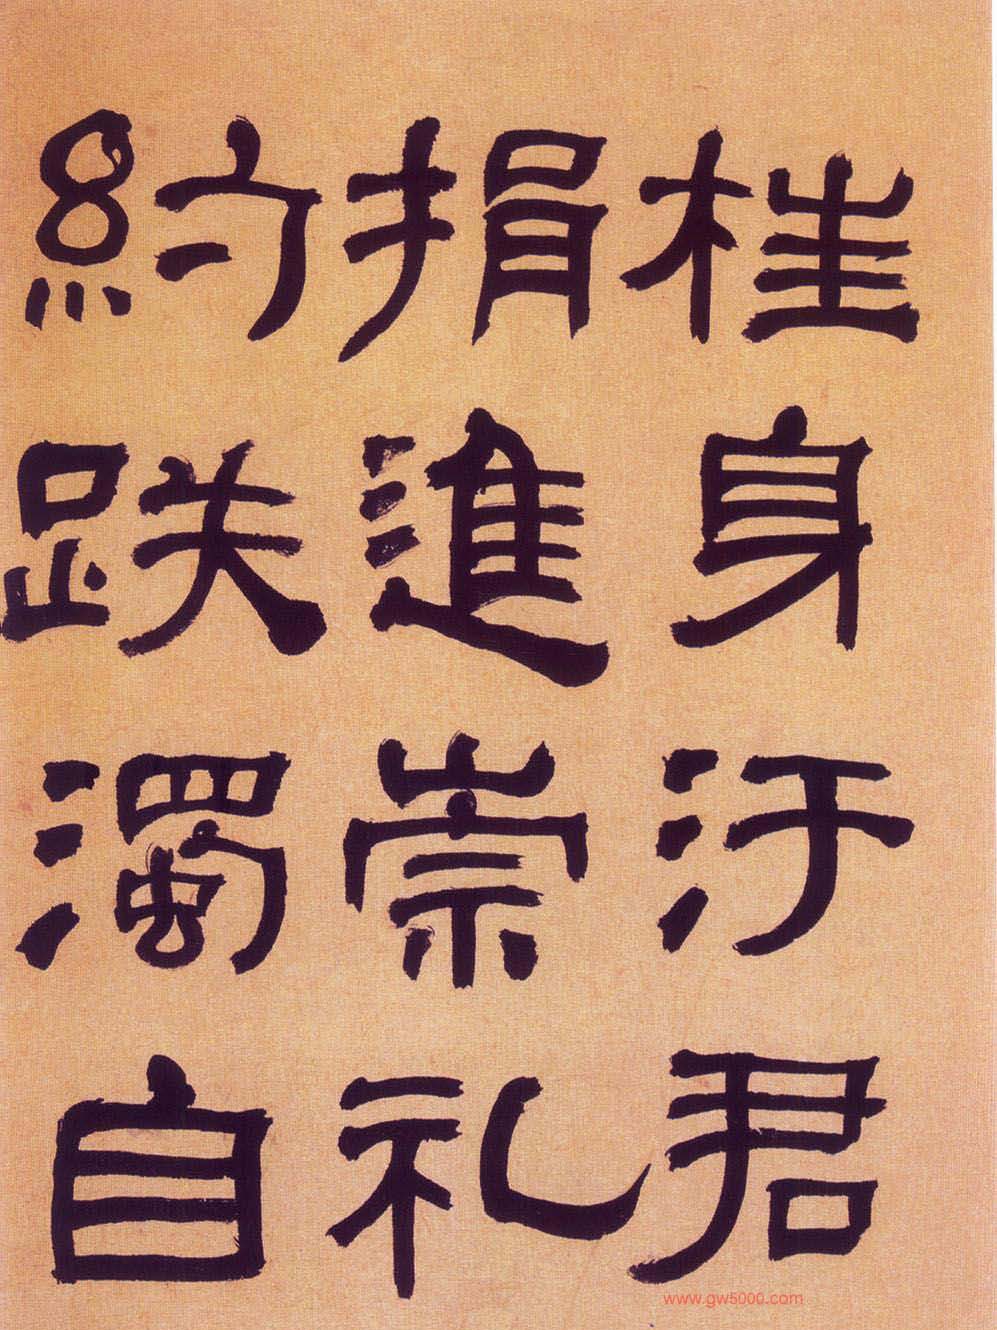 桂身汙君
捐進崇礼
約跌濁自
www.gw5000.com